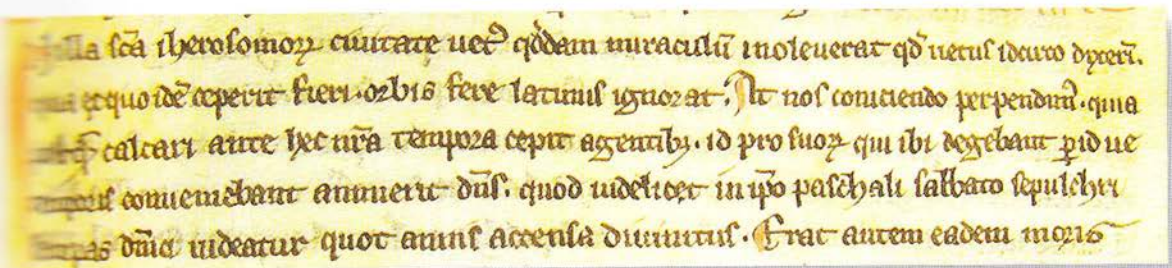 illa scā iherosomoꝝ ciuitate uetꝰ qđdam miraculū inoleuerat qđ uetus idcirco dyxerī.
ex quo idē ceperit fieri. orbis fere latinus ignorat. At nos coniciendo perpendimꝰ. quia
calcari ante hec nr̄a tempora cepit agentibꝫ. id pro suoꝝ qui ibi degebant ꝑ id ue
conueniebant annuerit dn̄s. quod uidelicet in ip̄o paschali sabbato sepulchri
dn̄ici uideatur quot annis accensa diuinitus. Erat autem eadem moris